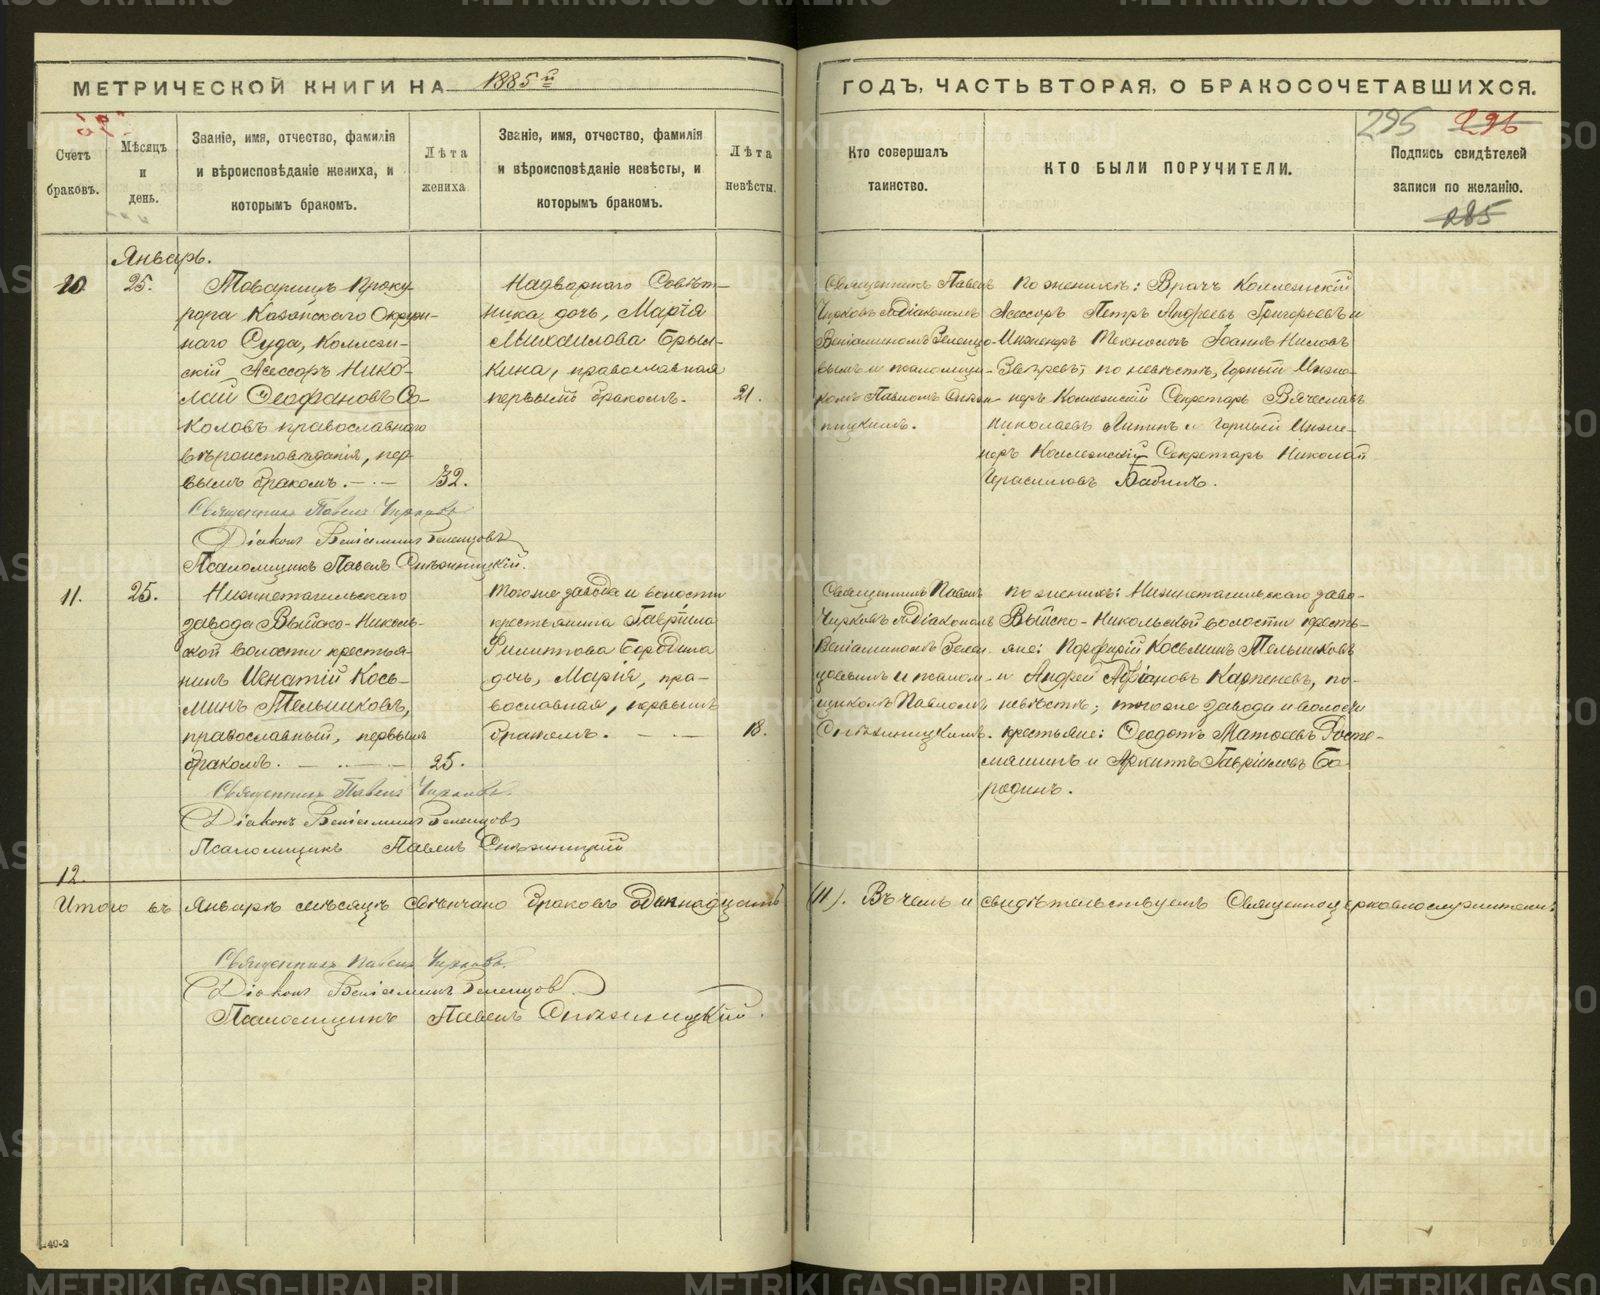 МЕТРИЧЕСКОЙ КНИГИ НА 1885й
ГОДЪ, ЧАСТЬ ВТОРАЯ, О БРАКОСОЧЕТАВШИХСЯ.
295 296
Счетъ браковъ.
Мѣсяцъ и день.
Званіе, имя, отчество, фамилія
и вѣроисповѣданіе жениха, и
которымъ бракомъ.
Лѣта
жениха
Званіе, имя, отчество, фамилія
и вѣроисповѣданіе невѣсты, и
которымъ бракомъ.
Лѣта
невѣсты.
Кто совершалъ
таинство.
КТО БЫЛИ ПОРУЧИТЕЛИ.
Подпись свидѣтелей
записи по желанію.
285
Январь.
10 25.
Товарищъ Проку-
рора Казанскаго Окруж-
наго Суда, Коллеж-
скій Асессоръ Нико-
лай Ѳеофановъ Со-
коловъ православнаго
вѣроисповѣданія, пер-
вымъ бракомъ. 32.
Надворнаго Совѣт-
ника дочь, Марія
Михаилова
православная
первымъ бракомъ. 21.
Священникъ Павелъ
Чирковъ съ Діакономъ
Веніаминомъ Зеленцо-
вымъ и псаломщи-
комъ Павломъ Снѣжи-
ницкимъ.
По женихѣ: Врачъ Коллежскій
Асессоръ Петръ Андреевъ Григорьевъ и
Инженеръ Технологъ Іоаннъ Ниловъ
Звѣревъ; по невѣстѣ, Горный Инже-
неръ Коллежскій Секретарь Вячеславъ
Николаевъ и горный Инже-
неръ Коллежскій Секретарь Николай
Герасимовъ Бабинъ.
Священникъ Павелъ Чирковъ
Діаконъ Веніаминъ Зеленцовъ
Псаломщикъ Павелъ Снѣжницкій.
11. 25.
Нижнетагильскаго
завода Выйско-Николь-
ской волости крестья-
нинъ Игнатій Кось-
минъ Мельниковъ,
православный, первымъ
бракомъ. 25.
Того же завода и волости
крестьянина Гавріила
Филиппова Бородина
дочь, Марія, пра-
вославная, первымъ
бракомъ. 18.
Священникъ Павелъ
Чирковъ съ Діакономъ
Веніаминомъ Зелен-
цовымъ и псалом-
щикомъ Павломъ
Снѣжницкимъ.
По женихѣ: Нижнетагильскаго заво-
Выйско-Никольской волости кресть-
яне: Порфирій Косьминъ Мельниковъ
и Андрей Адріановъ Карпеневъ, по-
невѣстѣ; того же завода и волости
крестьяне: Ѳеодотъ Матѳеевъ
и Гавріиловъ Бо-
родинъ.
Священникъ Павелъ Чирковъ
Діаконъ Веніаминъ Зеленцовъ
Псаломщикъ Павелъ Снѣжницкій
12.
Итого въ Январѣ мѣсяцѣ свѣнчано браковъ одиннадцать (11). Въ чемъ и свидѣтельствуемъ Священноцерковнослужители:
Священникъ Павелъ Чирковъ
Діаконъ Веніаминъ Зеленцовъ
Псаломщикъ Павелъ Снѣжницкій.
140-2
METRIKI.GASO-URAL.RU